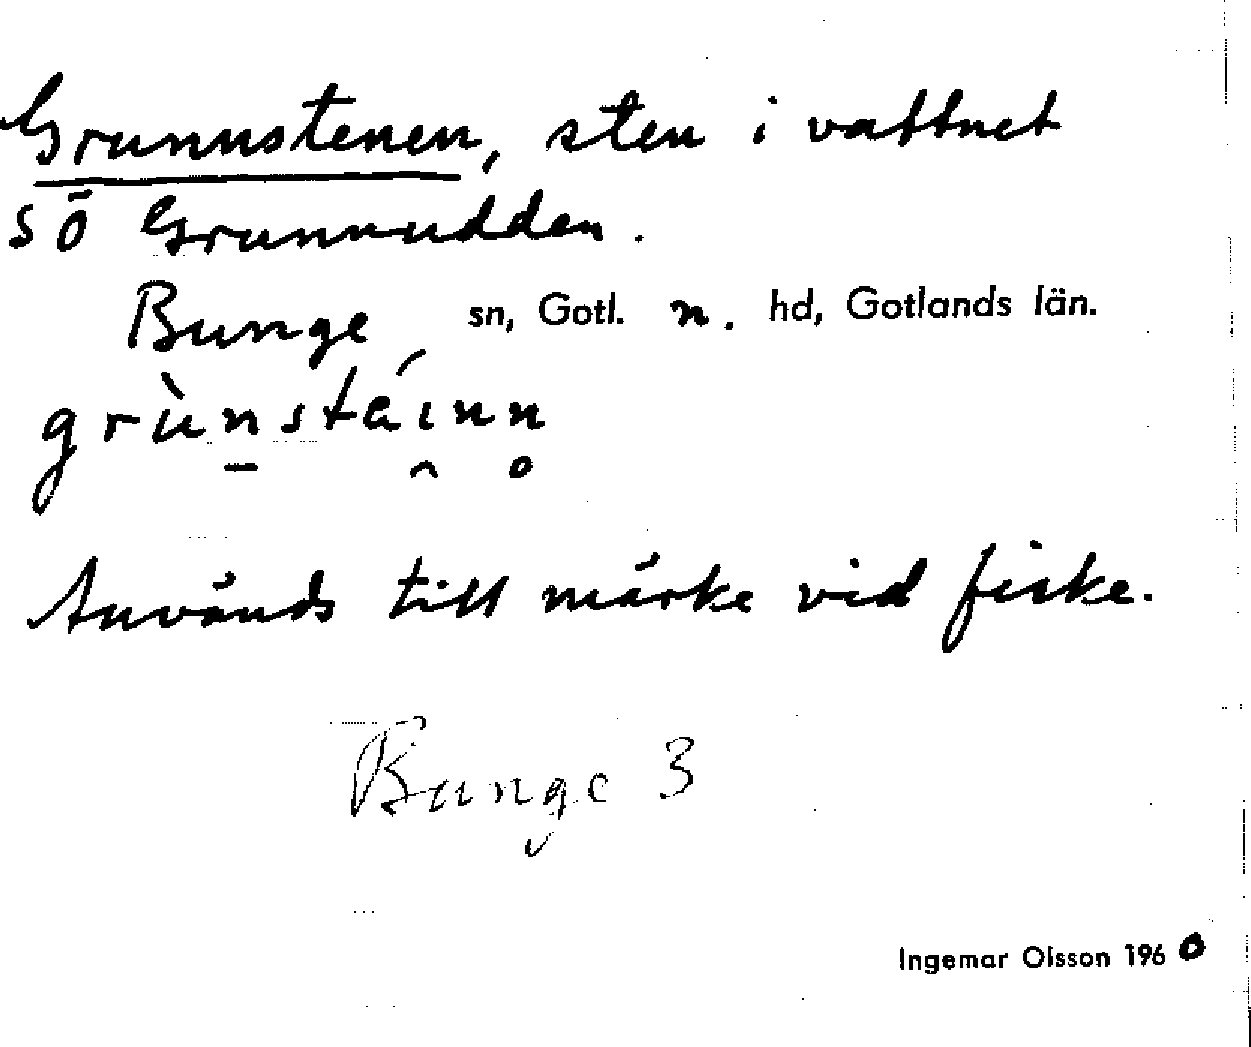 Grunnstenen, sten i vattnet
SÖ Grunnudden.
Bunge, sn, Gotl. n. hd, Gotlands län.
grùn̠stái̯nn̥
Används till märke vid fiske.
Bunge 3
Ingemar Olsson 1960